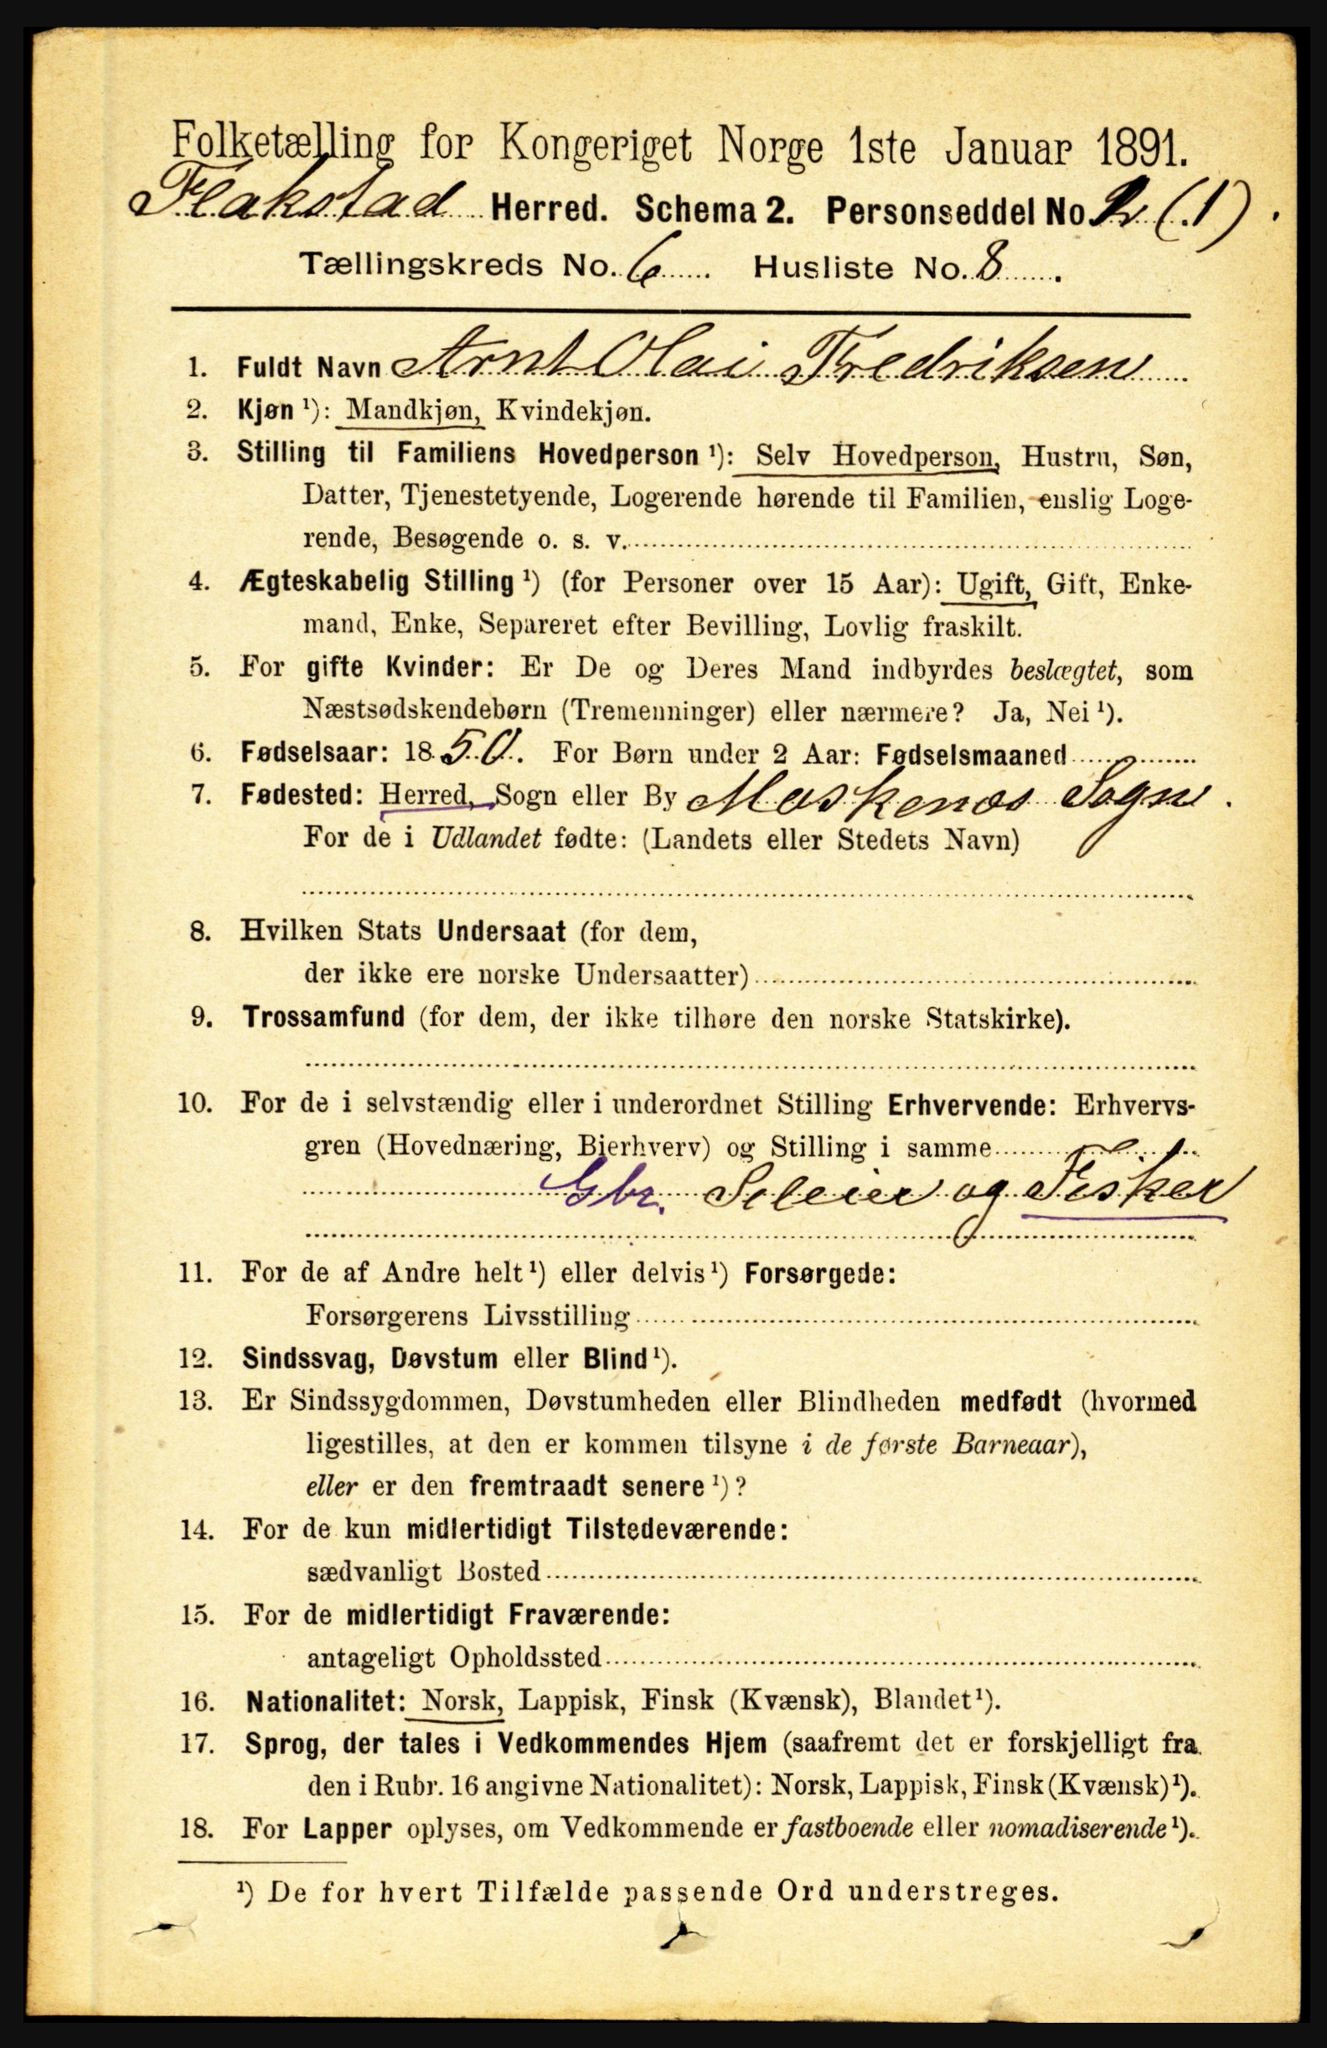 Folketælling for Kongeriget Norge 1ste Januar 1891.
Flakstad Herred. Schema 2. Personseddel No. 2 (1).
Tællingskreds No. 6 Husliste No. 8.
1. Fuldt Navn Arnt Olai Fredriksen
2. Kjøn ¹): Mandkjøn, Kvindekjøn.
3. Stilling til Familiens Hovedperson ¹): Selv Hovedperson, Hustru, Søn,
Datter, Tjenestetyende, Logerende hørende til Familien, enslig Loge-
rende, Besøgende o. s. v.
4. Ægteskabelig Stilling ¹) (for Personer over 15 Aar): Ugift, Gift, Enke-
mand, Enke, Separeret efter Bevilling, Lovlig fraskilt.
5. For gifte Kvinder: Er De og Deres Mand indbyrdes beslægtet, som
Næstsødskendebørn (Tremenninger) eller nærmere? Ja, Nei ¹).
6. Fødselsaar: 1850. For Børn under 2 Aar: Fødselsmaaned
7. Fødested: Herred, Sogn eller By Moskenæs Sogn.
For de i Udlandet fødte: (Landets eller Stedets Navn)
8. Hvilken Stats Undersaat (for dem,
der ikke ere norske Undersaatter)
9. Trossamfund (for dem, der ikke tilhøre den norske Statskirke).
10. For de i selvstændig eller i underordnet Stilling Erhvervende: Erhvervs-
gren (Hovednæring, Bierhverv) og Stilling i samme
Gbr. Seleier og Fisker
11. For de af Andre helt ¹) eller delvis ¹) Forsørgede:
Forsørgerens Livsstilling
12. Sindssvag, Døvstum eller Blind ¹).
13. Er Sindssygdommen, Døvstumheden eller Blindheden medfødt (hvormed
ligestilles, at den er kommen tilsyne i de første Barneaar),
eller er den fremtraadt senere ¹)?
14. For de kun midlertidigt Tilstedeværende:
sædvanligt Bosted
15. For de midlertidigt Fraværende:
antageligt Opholdssted
16. Nationalitet: Norsk, Lappisk, Finsk (Kvænsk), Blandet ¹).
17. Sprog, der tales i Vedkommendes Hjem (saafremt det er forskjelligt fra
den i Rubr. 16 angivne Nationalitet): Norsk, Lappisk, Finsk (Kvænsk) ¹).
18. For Lapper oplyses, om Vedkommende er fastboende eller nomadiserende ¹).
¹) De for hvert Tilfælde passende Ord understreges.